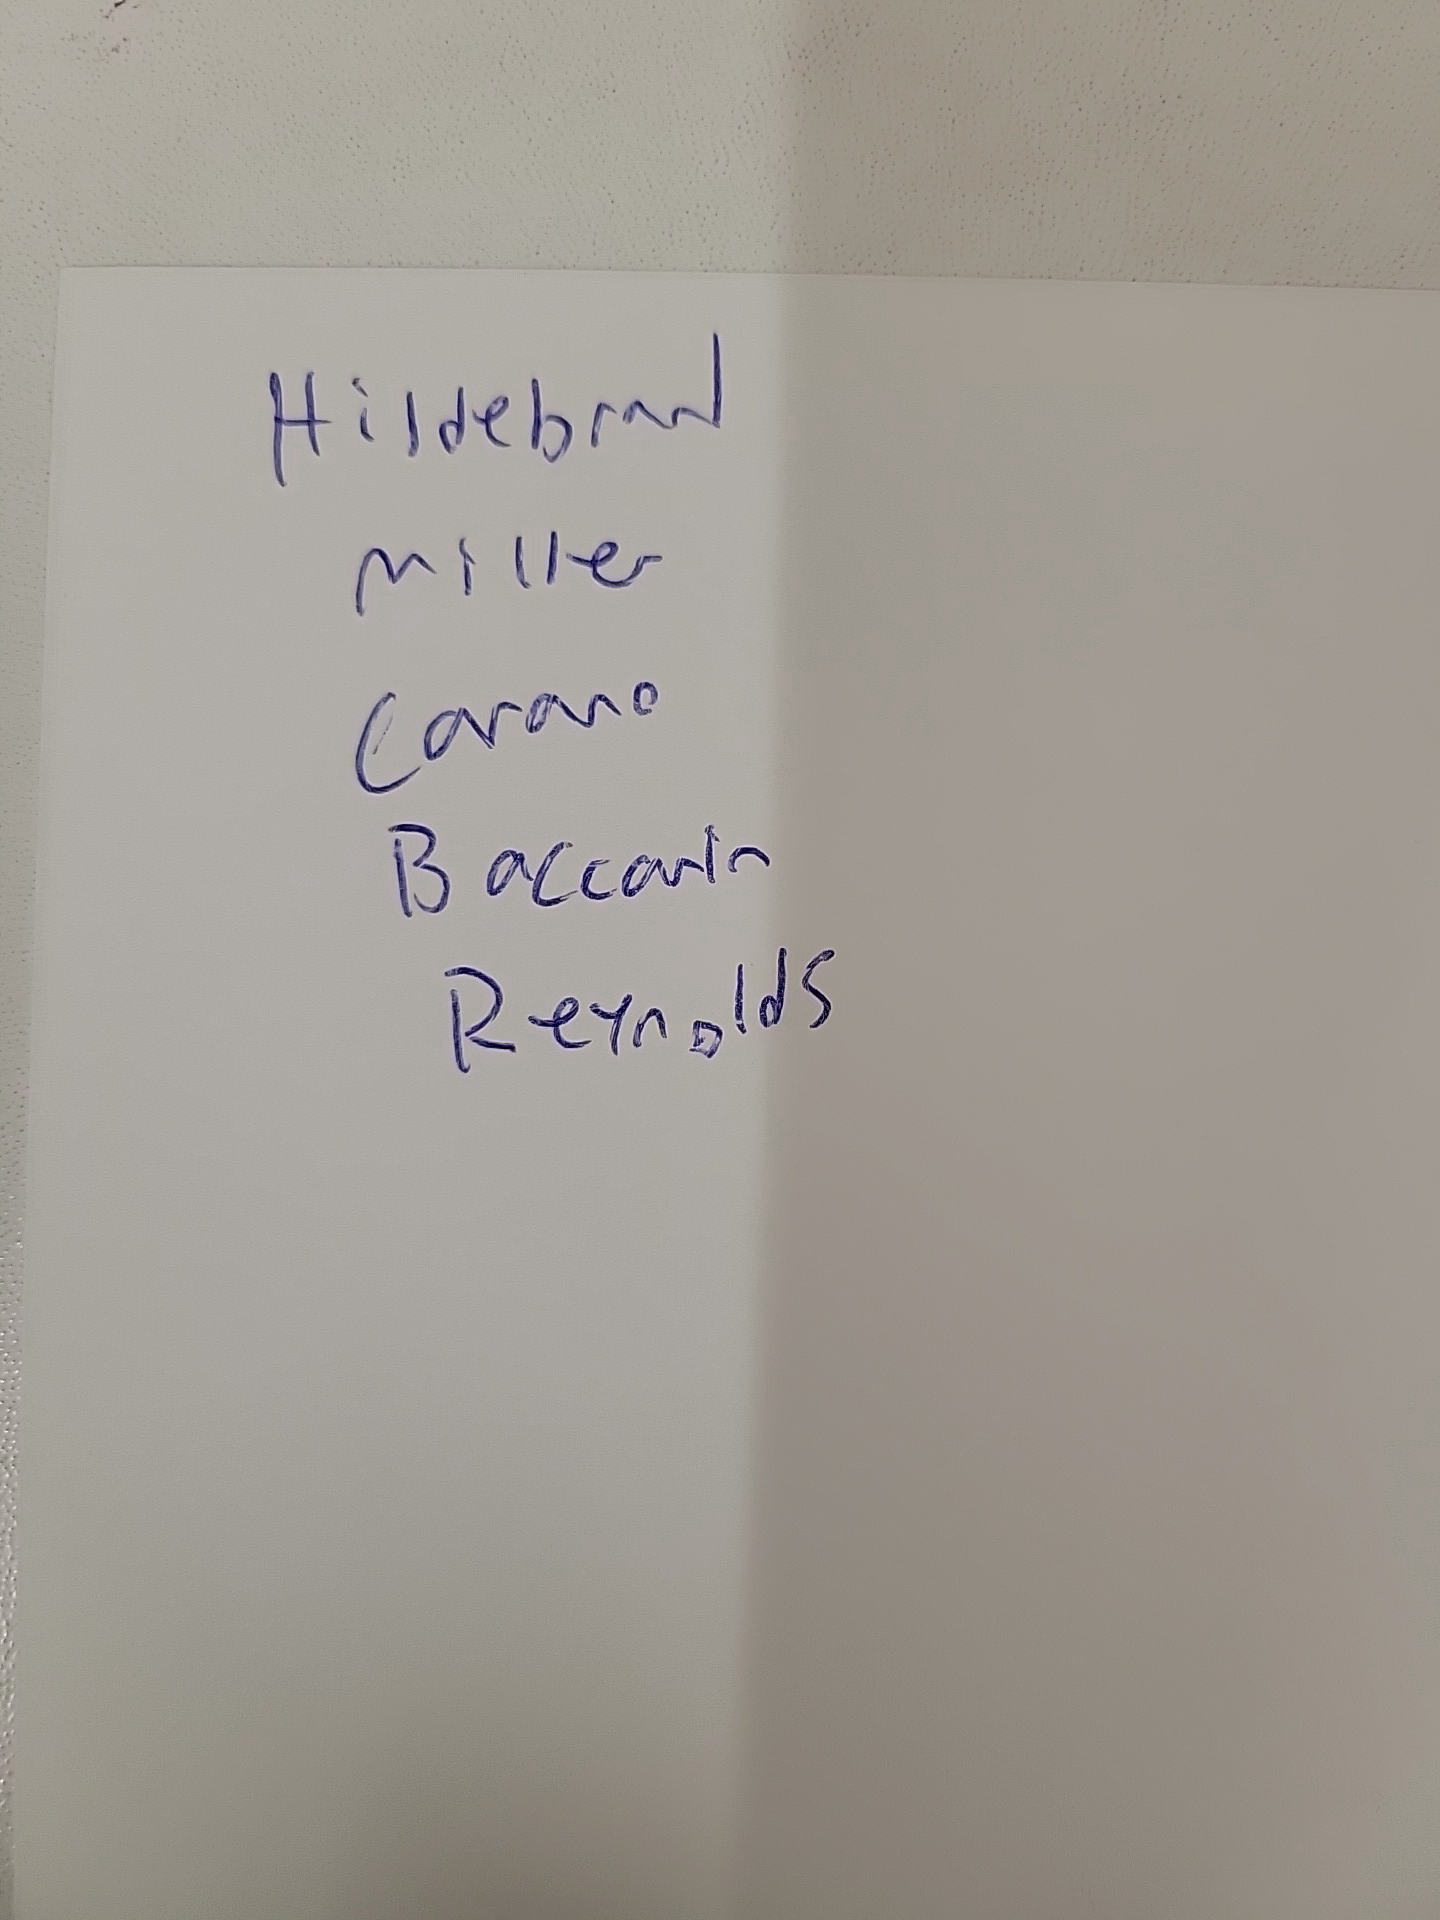 Hildebrand
Miller
Carano
Baccarin
Reynolds